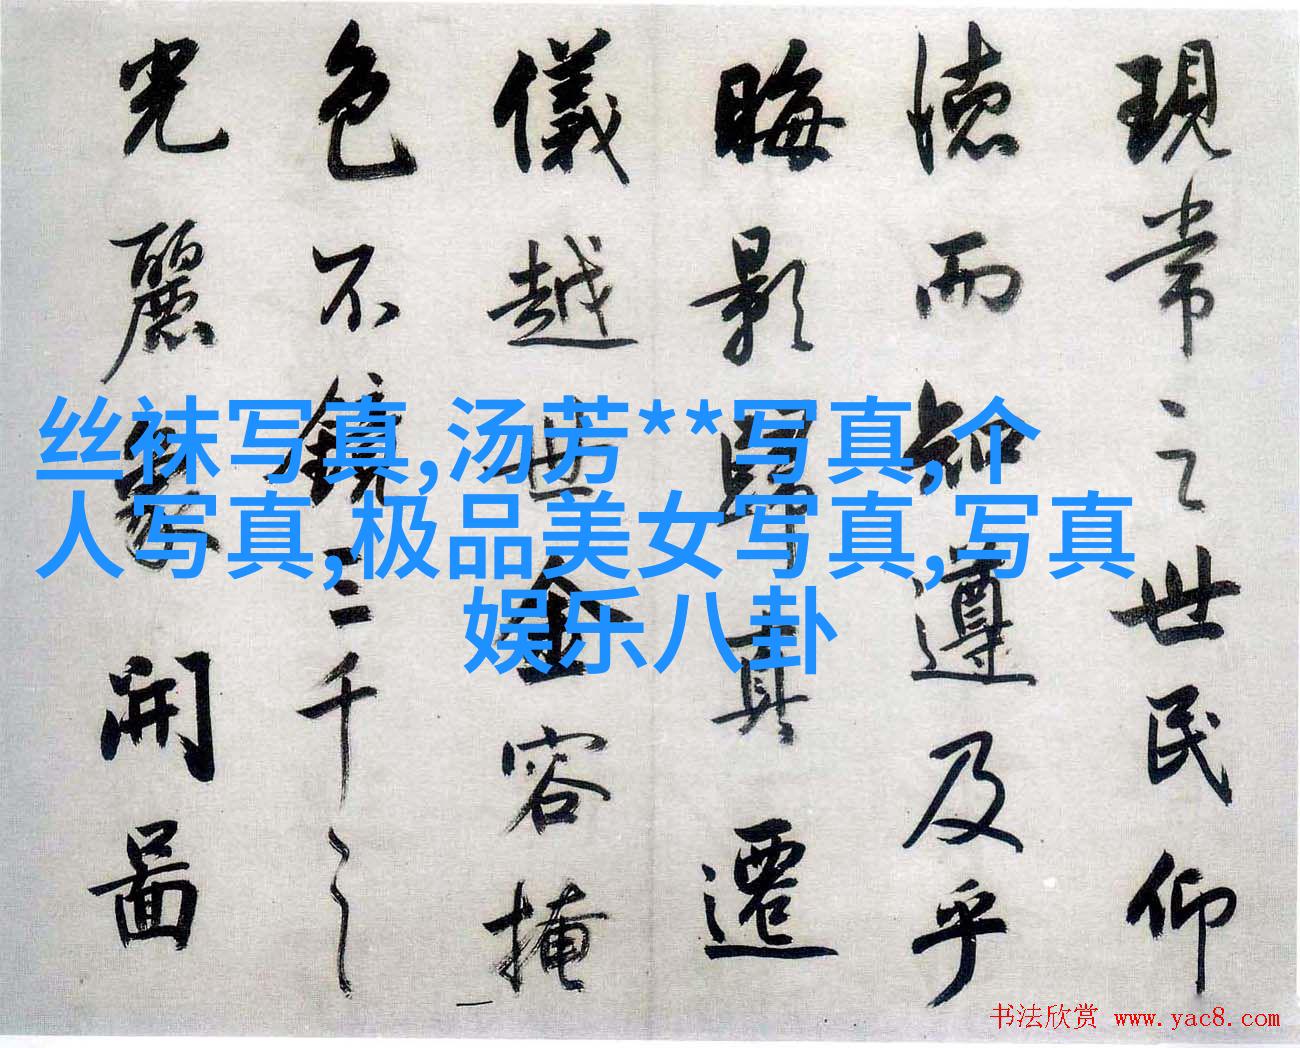 現常之世民仰
德而知遵及乎
晦影歸真遷
儀越世金容掩
色不鏡三千之
光麗象開圖
丝袜写真,汤芳**写真,个
人写真,极品美女写真,写真
娱乐八卦
书法欣赏 www.yac8.com